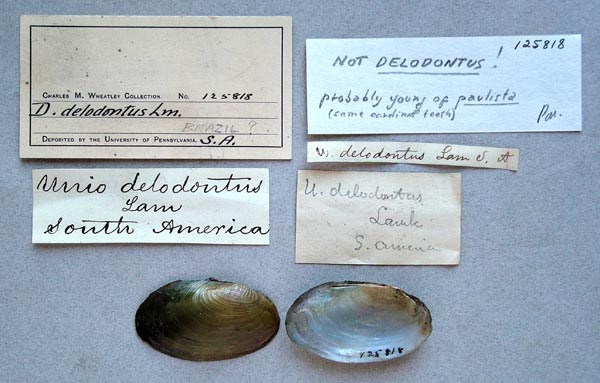 CHARLES M. WHEATLEY COLLECTION. No. 125818
D. delodontus Lm.
BRAZIL ?
DEPOSITED BY THE UNIVERSITY OF PENNSYLVANIA. S.A.
125818
NOT DELODONTUS!
probably young of paulista
(same cardinal teeth)
U. delodontus Lam S. A
Unio delodontus
Lam
South America
U. delodontus
Lamk
S. america
125818